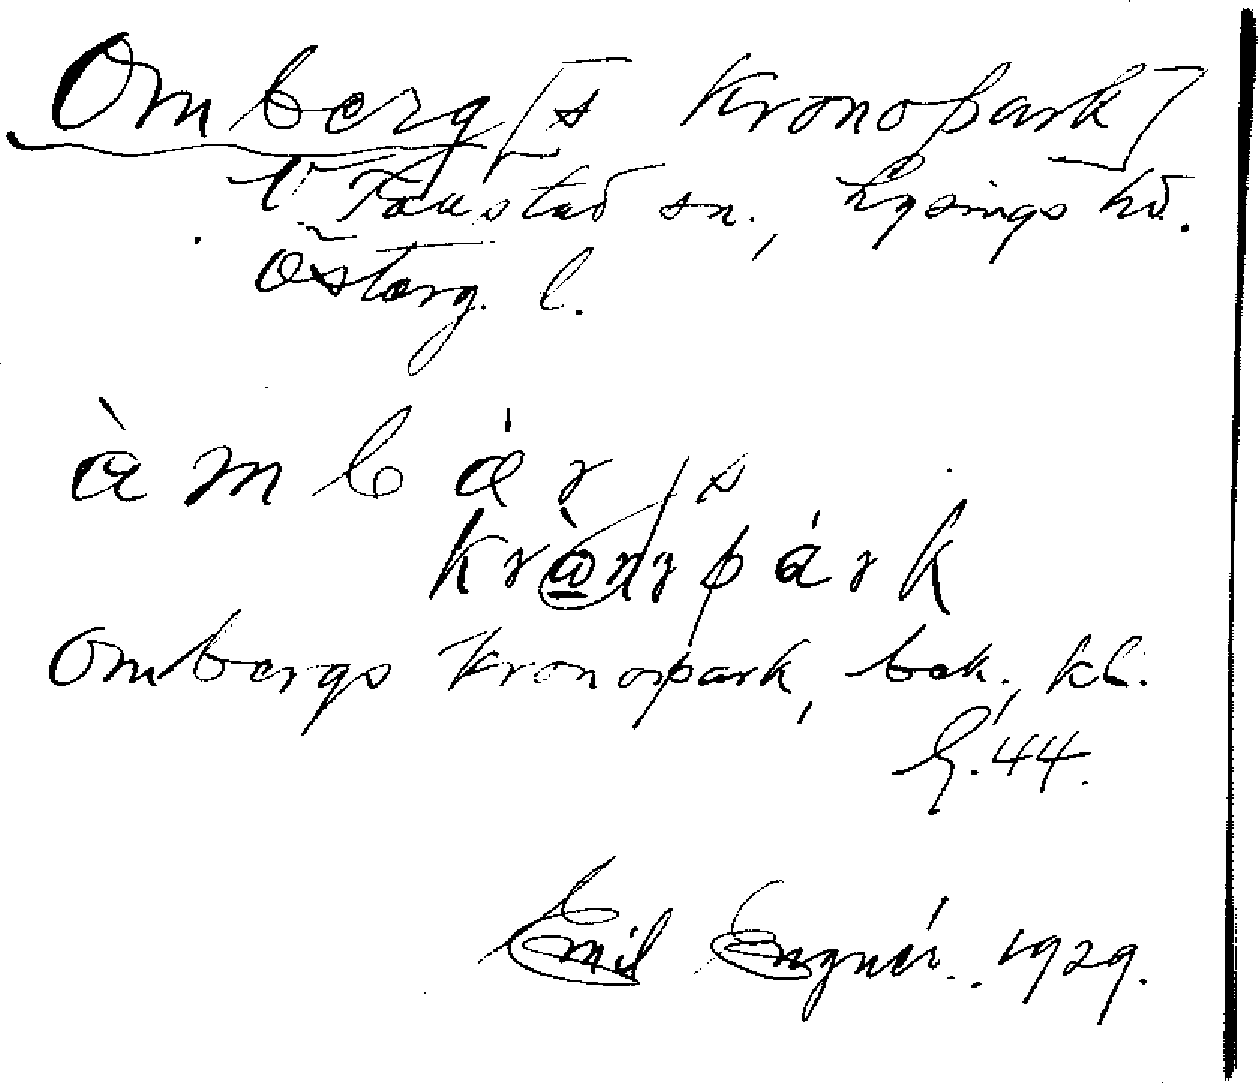 Omberg[s Kronopark]
V. Tollstad sn., Lysings hd.
Österg. l.
àmbárs
krònrpárk
Ombergs Kronopark, bek., kb.
G. 44.
Emil Engnér. 1929.